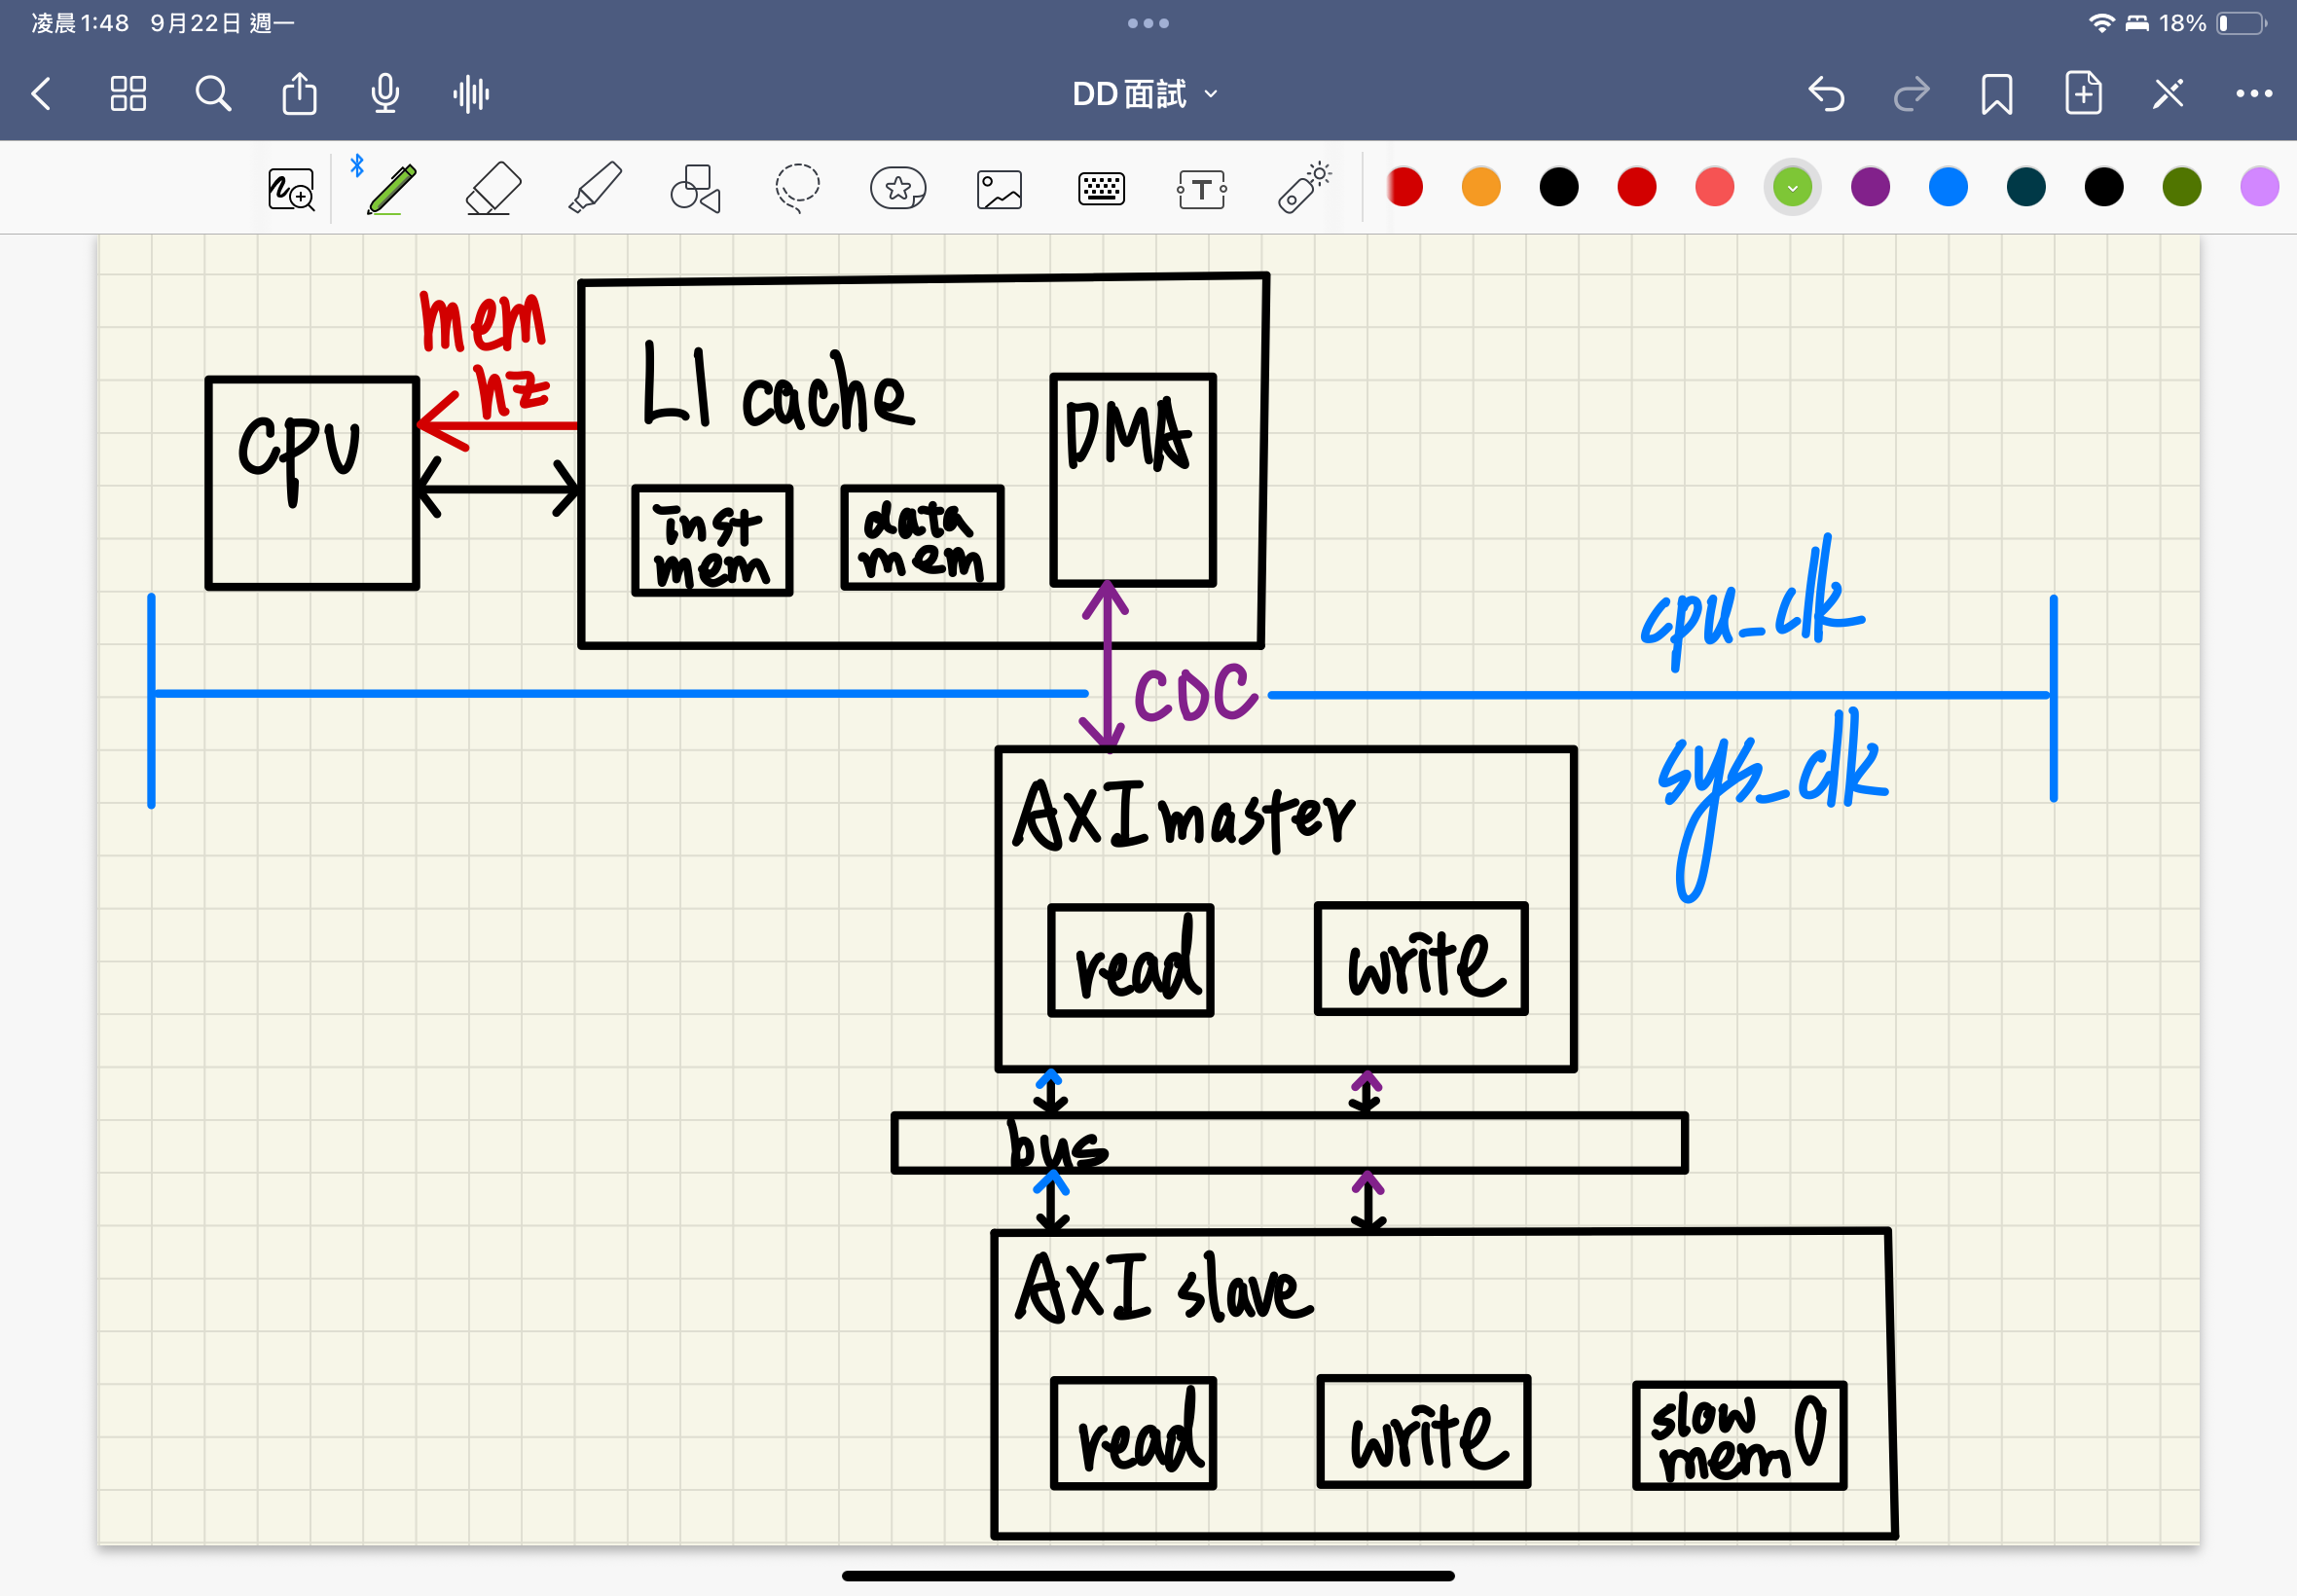 凌晨1:48 9月22日 週一
18%
DD 面試
T
mem
hz
CPU
L1 cache
DMA
inst
mem
data
mem
cpu_clk
CDC
sys_clk
AXI master
read
write
bus
AXI slave
read
write
slow
mem 0